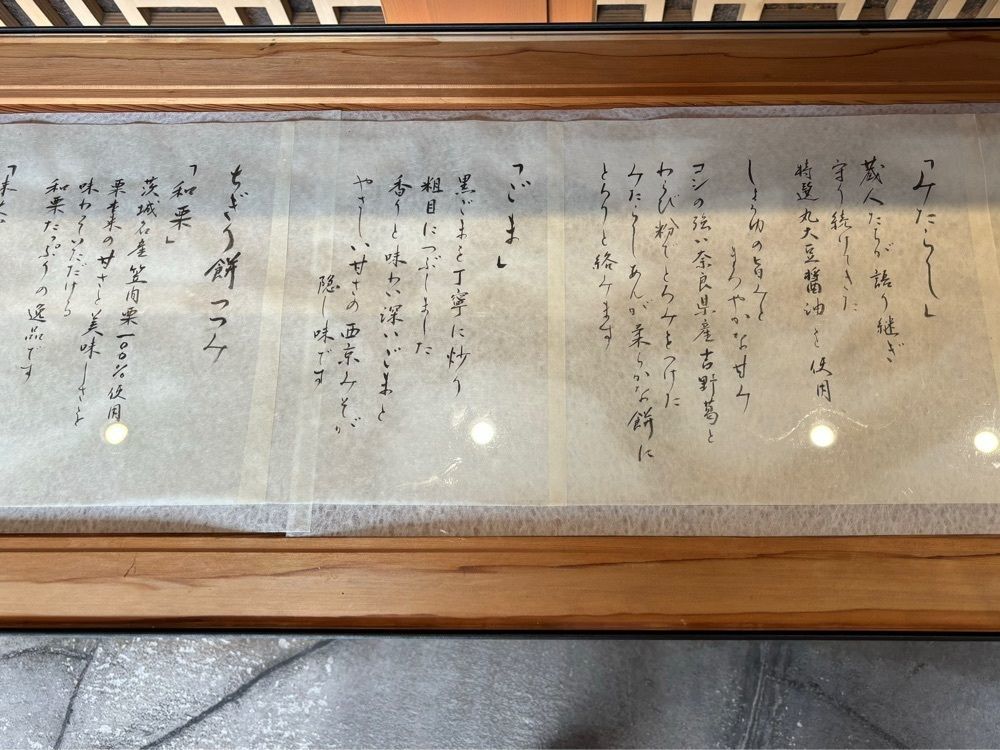 「みたらし」
蔵人たちが語り継ぎ
守り続けてきた
特選丸大豆醤油を使用
しょうゆの旨みと
まろやかな甘み
コシの強い奈良県産吉野葛と
わらび粉でとろみをつけた
みたらしあんが柔らかな餅に
とろりと絡みます
「ごま」
黒ごまを丁寧に炒り
粗目につぶしました
香りと味わい深いごまと
やさしい甘さの西京みそが
隠し味です
ちぎり餅つつみ
「和栗」
茨城名産笠間栗一〇〇%使用
栗本来の甘さと美味しさを
味わっていただける
和栗たっぷりの逸品です